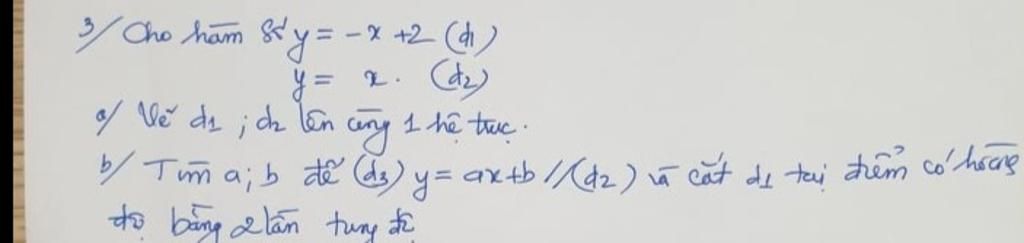 3/ Cho hàm số y = -x +2 (d1)
y = x. (d2)
a/ Vẽ d1 ; d2 lên cùng 1 hệ trục.
b/ Tìm a; b để (d3) y = ax+b //(d2) và cắt d1 tại điểm có hoành
độ bằng 2 lần tung độ